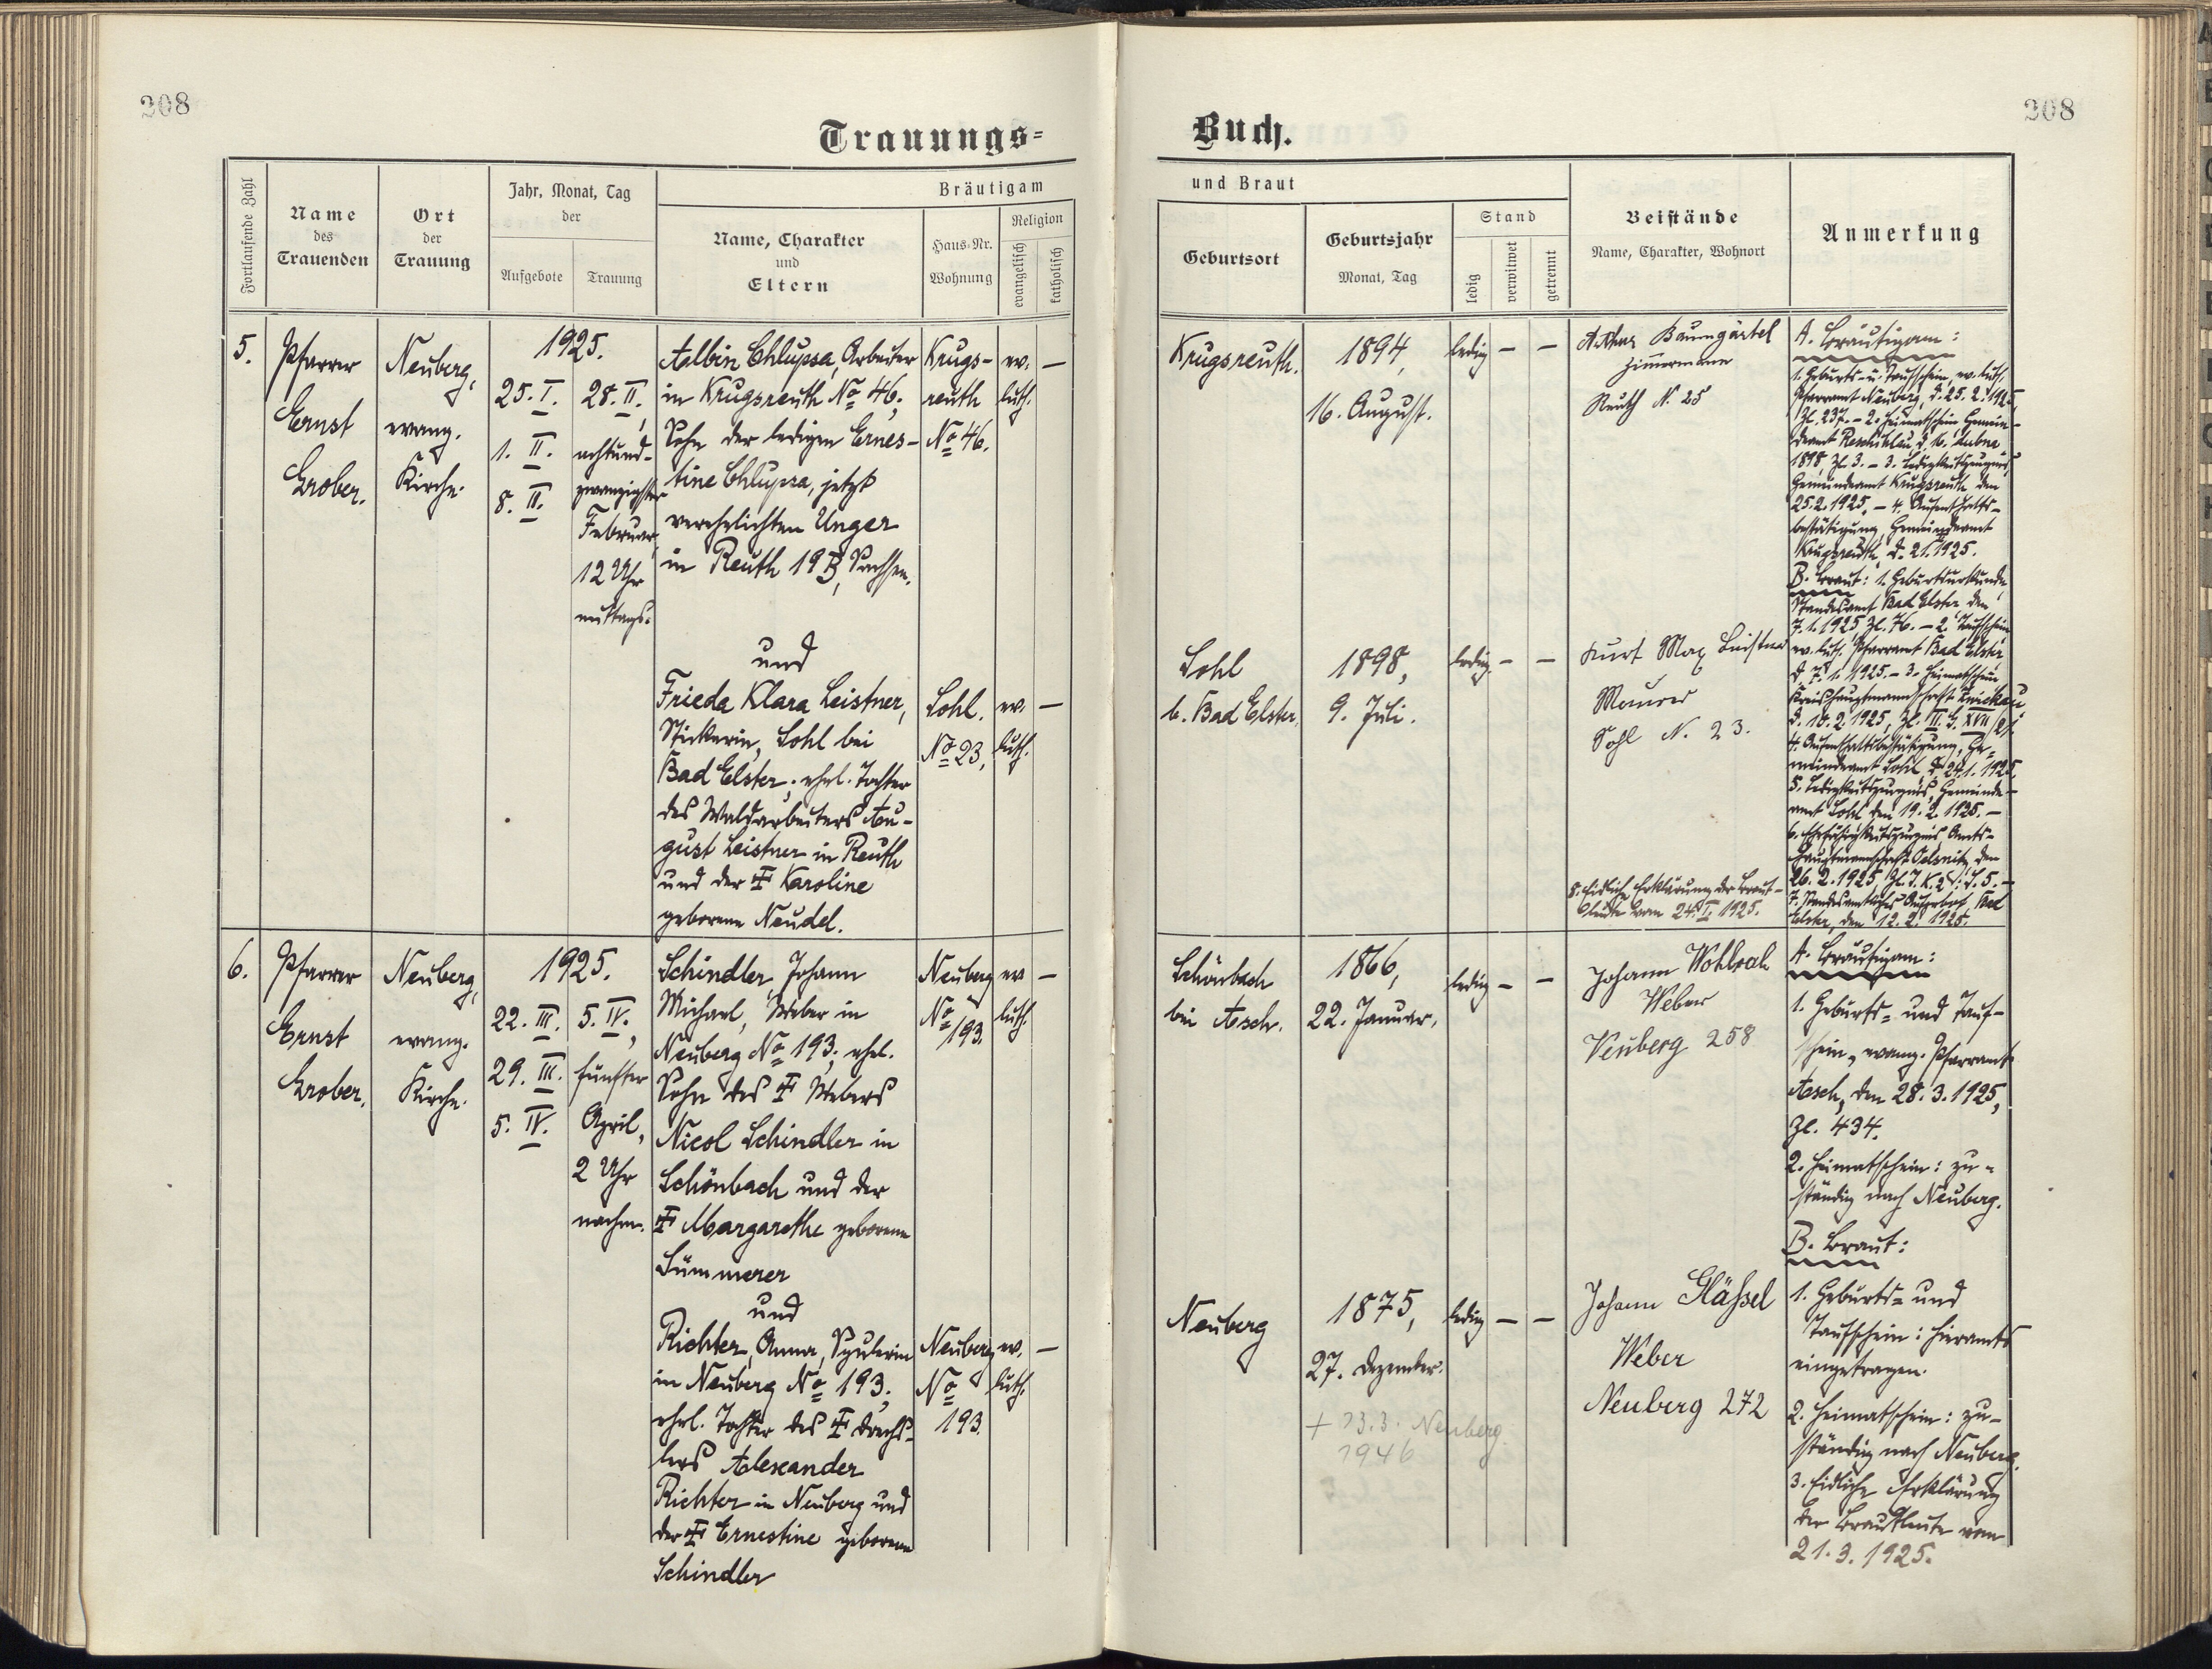 208
208
Trauungs-
Buch.
Fortlaufende Zahl
Name
des
Trauenden
Ort
der
Trauung
Jahr, Monat, Tag
der
Aufgebote
Trauung
Bräutigam
Name, Charakter
und
Eltern
Haus-Nr.
Wohnung
Religion
evangelisch
katholisch
und Braut
Geburtsort
Geburtsjahr
Monat, Tag
Stand
ledig
verwitwet
getrennt
Beistände
Name, Charakter, Wohnort
Anmerkung
5.
Pfarrer
Ernst
Grober.
Neuberg,
evang.
Kirche.
1925.
25. I.
1. II.
8. II.
28. II.,
achtund-
zwanzigster
Februar,
12 Uhr
mittags.
Albin Chlupsa, Arbeiter
in Krugsreuth No 46,
Sohn der ledigen Ernes-
tine Chlupsa, jetzt
verehelichten Unger
in Reuth 19B, Sachsen.
Krugs-
reuth
No 46.
ev.
luth.
—
und
Frieda Klara Leistner,
Stickerin, Sohl bei
Bad Elster, ehel. Tochter
des Waldarbeiters Au-
gust Leistner in Reuth
und der ‡ Karoline
geborene Neudel.
Sohl.
No 23,
ev.
luth.
—
Krugsreuth.
1894,
16. August.
ledig — —
Arthur Baumgärtel
Zimermann
Reuth N. 25
Sohl
b. Bad Elster,
1898,
9. Juli.
ledig — —
Kurt Max Leistner
Maurer
Sohl N. 23.
8. Eidliche Erklärung der Braut-
leute vom 24. I. 1925.
A. Bräutigam:
1. Geburts- u. Taufschein, ev. luth.
Pfarramt Neuberg, d. 25. 2. 1925,
Zl. 237. - 2. Heimatschein Gemein-
deamt
1898, Zl. 3. - 3. Ledigkeitszeugnis,
Gemeindeamt Krugsreuth den
25.2.1925. - 4. Aufenthalts-
bestätigung, Gemeindeamt
Krugsreuth, d. 21. 1925.
B. Braut: 1. Geburtsurkunde,
Standesamt Bad Elster den
7. 1. 1925, Zl. 76. - 2. Taufschein
ev. luth. Pfarramt Bad Elster,
d. 7. 1. 1925. - 3. Heimatschein
Kreishauptmannschaft Zwickau,
d. 10. 2. 1925, Zl. III.
4. Aufenthaltsbestätigung, Ge-
meindeamt Sohl, d. 24. 1. 1925.
5. Ledigkeitszeugnis, Gemeinde-
amt Sohl den 19. 2. 1925. -
6. Ehefähigkeitszeugnis Amts-
hauptmannschaft Oelsnitz, den
26. 2. 1925,
7. Standesamtliches Aufgebot, Bad
Elster, den 12. 2. 1925.
6.
Pfarrer
Ernst
Grober.
Neuberg,
evang.
Kirche.
1925.
22. III.
29. III.
5. IV.
5. IV.,
fünfter
April,
2 Uhr
nachm.
Schindler, Johann
Michael, Weber in
Neuberg No 193, ehel.
Sohn des ‡ Webers
Nicol Schindler in
Schönbach und der
‡ Margarethe geborene
Sümmerer
Neuberg
No
193.
ev.
luth.
—
und
Richter, Anna, Spulerin
in Neuberg No 193,
ehel. Tochter des ‡ Drechs-
lers Alexander
Richter in Neuberg und
der ‡ Ernestine geborene
Schindler
Neuberg
No
193.
ev.
luth.
—
Schönbach
bei Asch.
1866,
22. Januar.
ledig — —
Johann Wohlrab
Weber
Neuberg 258
Neuberg
1875,
27. Dezember.
+ 23.3. Neuberg
1946
ledig — —
Johann Gläßel
Weber
Neuberg 272
A. Bräutigam:
1. Geburts- und Tauf-
schein, evang. Pfarramt
Asch, den 28. 3. 1925,
Zl. 434.
2. Heimatschein: zu-
ständig nach Neuberg.
B. Braut:
1. Geburts- und
Taufschein: hieramts
eingetragen.
2. Heimatschein: zu-
ständig nach Neuberg.
3. Eidliche Erklärung
der Brautleute vom
21. 3. 1925.